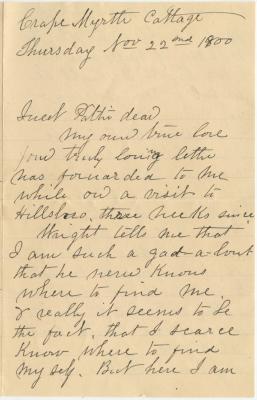 Crape Myrtle Cottage
Thursday Nov 22nd 1800
Sweet Pattie dear
My own true love
your truly loving letter
was forwarded to me
while on a visit to
Hillsboro, three weeks since
Wright tells me that
I am such a gad-a-bout
that he never knows
where to find me.
& really it seems to be
the fact, that I scarce
know where to find
my self. But here I am